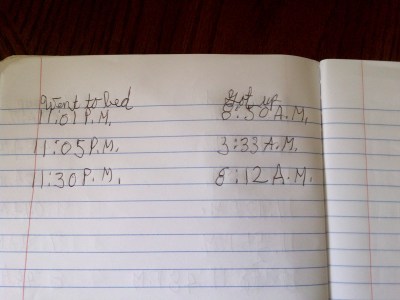 Went to bed Got up
11:01 P.M. 8:50 A.M.
11:05 P.M. 3:33 A.M.
11:30 P.M. 8:12 A.M.